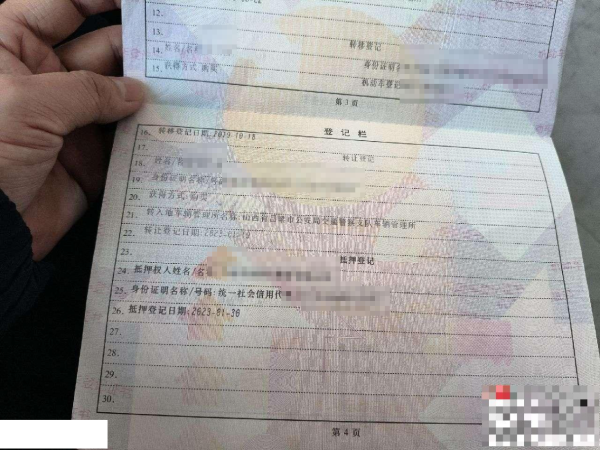 12.
13.
转移登记
14. 姓名/名称
身份证明名
15. 获得方式 购买
机动车登记
第 3 页
登 记 栏
16. 转移登记日期:2019-10-18
17.
转让登记
18. 姓名/
19. 身份证明名称/号码
20. 获得方式 购买
21. 转入地车辆管理所名称:山西省吕梁市公安局交通警察支队车辆管理所
22. 转让登记日期:2023-01-
23.
抵押登记
24. 抵押权人姓名/名
25. 身份证明名称/号码:统一社会信用代
26. 抵押登记日期:2023-01-30
27.
28.
29.
30.
第 4 页